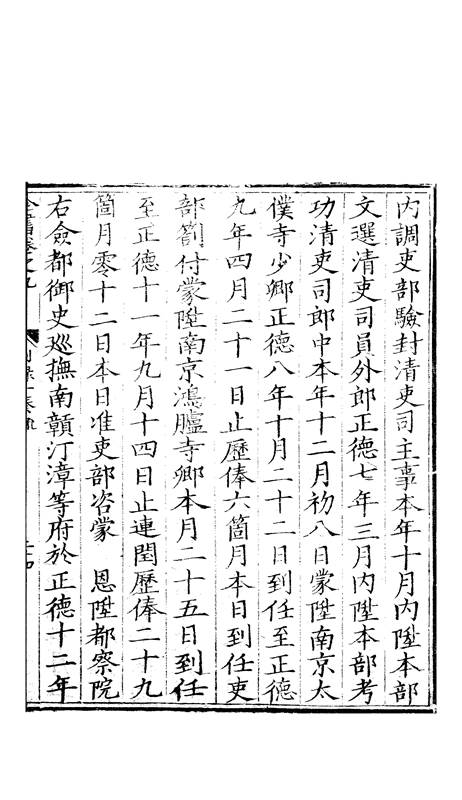 内調吏部驗封清吏司主事本年十月内陞本部
文選清吏司員外郎正德七年三月内陞本部考
功清吏司郎中本年十二月初八日蒙陞南京太
僕寺少卿正德八年十月二十二日到任至正德
九年四月二十一日止歷俸六箇月本日到任吏
部劄付蒙陞南京鴻臚寺卿本月二十五日到任
至正德十一年九月十四日止連閏歷俸二十九
箇月零十二日本日准吏部咨蒙 恩陞都察院
右僉都御史巡撫南贛汀漳等府於正德十二年